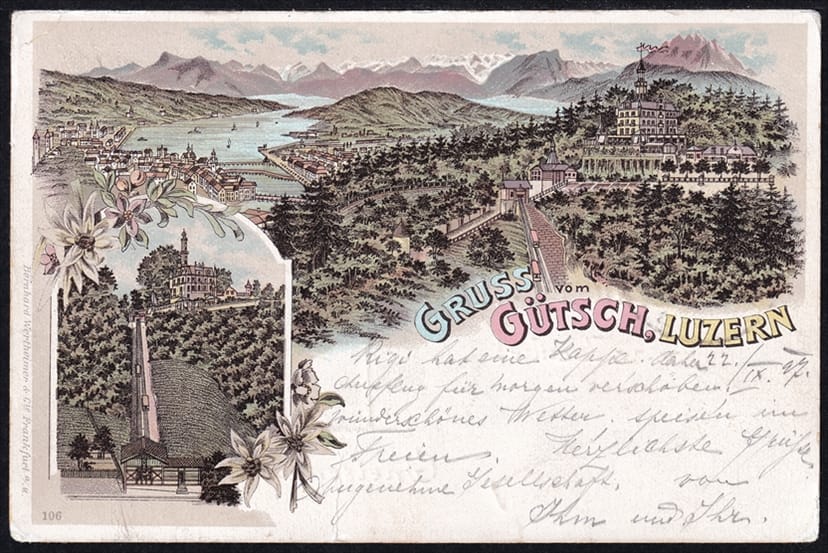 GRUSS
vom
GÜTSCH, LUZERN
Rigi hat eine Kappe. daher 22./IX. 97.
Ausflug für morgen verschoben.
wunderschönes Wetter. speisen im
Freien. Herzlichste Grüße
Angenehme Gesellschaft. von
Ihm und Ihr.
Bernhard Wertheimer & Cie Frankfurt a/M
106